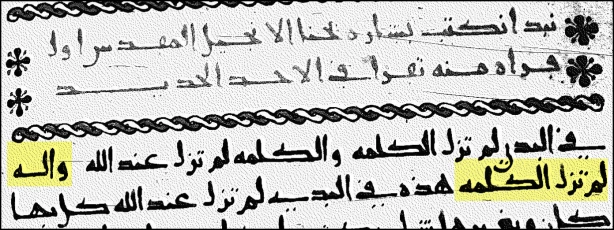 نبدا نكتب بشاره يحنا الانجيل المقدس اول
قراه منه تقرا في الاحد الجديد
في البدى لم تزل الكلمه والكلمه لم تزل عند الله واله
لم تزل الكلمه هذه في البديه لم تزل عند الله كل بها
كان وبغيرها